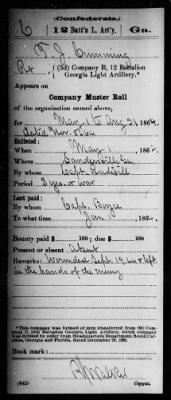 (Confederate.)
6 12 Batt'n L. Art'y. Ga.
T. J. Cumming
Pvt., (2d) Company B, 12 Battalion
Georgia Light Artillery.*
Appears on
Company Muster Roll
of the organization named above,
for May 1 to Aug 31, 1864.
dated Nov. 5, 1864
Enlisted:
When May 1, 186
Where Sandersville Ga
By whom Capt.
Period 3 yrs or war
Last paid:
By whom Capt.
To what time Jan 1, 186
Bounty paid $ 100; due $ 100
Present or absent Absent
Remarks: Wounded Sept. 19, 64 & left
in the hands of the enemy
*This company was formed of men transferred from (2d) Com-
pany C, 12th Battalion Georgia Light Artillery, which company
was divided by order from Headquarters Department South Caro-
lina, Georgia and Florida, dated December
Book mark:
(642) Copyist.